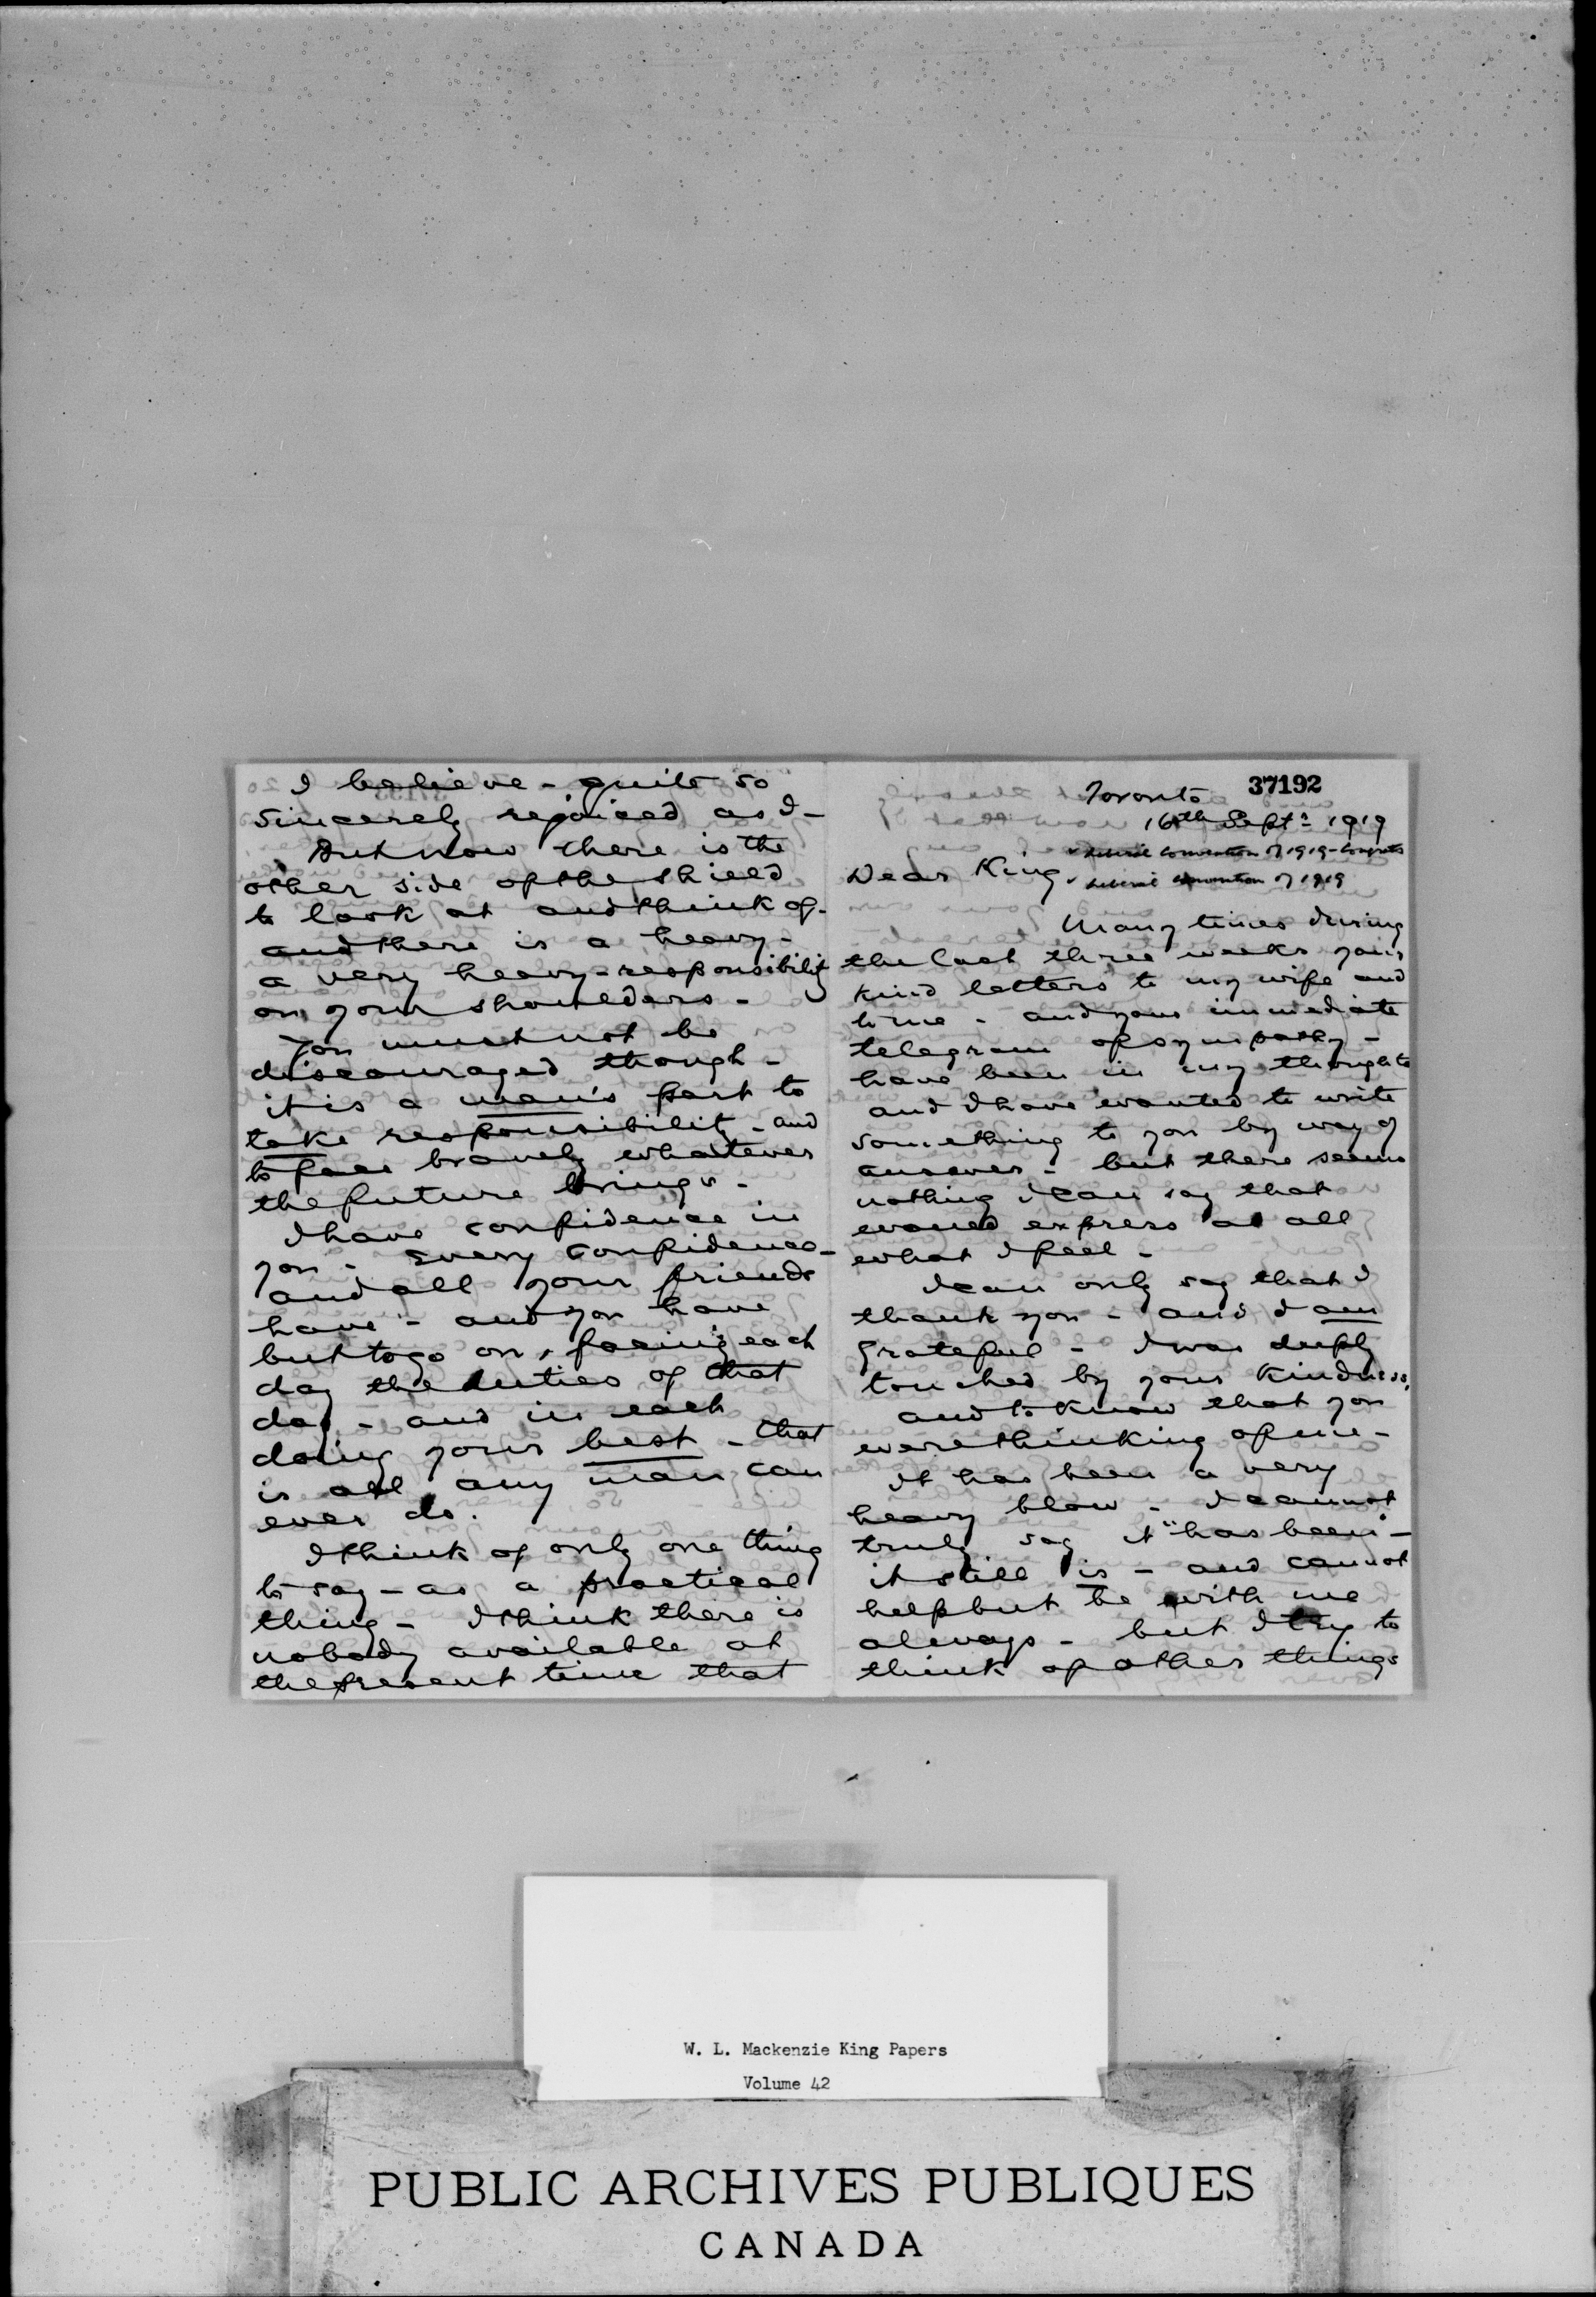 I believe - quite so
sincerely rejoiced as I -
But now there is the
other side of the shield
to look at and think of -
and there is a heavy -
a very heavy - responsibility
on your shoulders -
You must not be
discouraged though -
it is a man's part to
take responsibility - and
to face bravely whatever
the future brings -
I have confidence in
you - every confidence -
and all your friends
have - and you have
but to go on, facing each
day the duties of that
day - and in each
doing your best - that
is all any man can
ever do.
I think of only one thing
to say - as a practical
thing - I think there is
nobody available at
the present time that
37192
Toronto
16th Sept: 1919
Liberal Convention of 1919 - Congrats
Dear King.
Liberal Convention of 1919
Many times during
the last three weeks your
kind letters to my wife and
to me - and your immediate
telegram of sympathy -
have been in my thoughts
and I have wanted to write
something to you by way of
answer - but there seems
nothing I can say that
would express at all
what I feel -
I can only say that I
thank you - and I am
grateful - I was deeply
touched by your kindness,
and to know that you
were thinking of me -
It has been a very
heavy blow - I cannot
truly say it "has been" -
it still is - and cannot
help but be with me
always - but I try to
think of other things
W. L. Mackenzie King Papers
Volume 42
PUBLIC ARCHIVES PUBLIQUES
CANADA